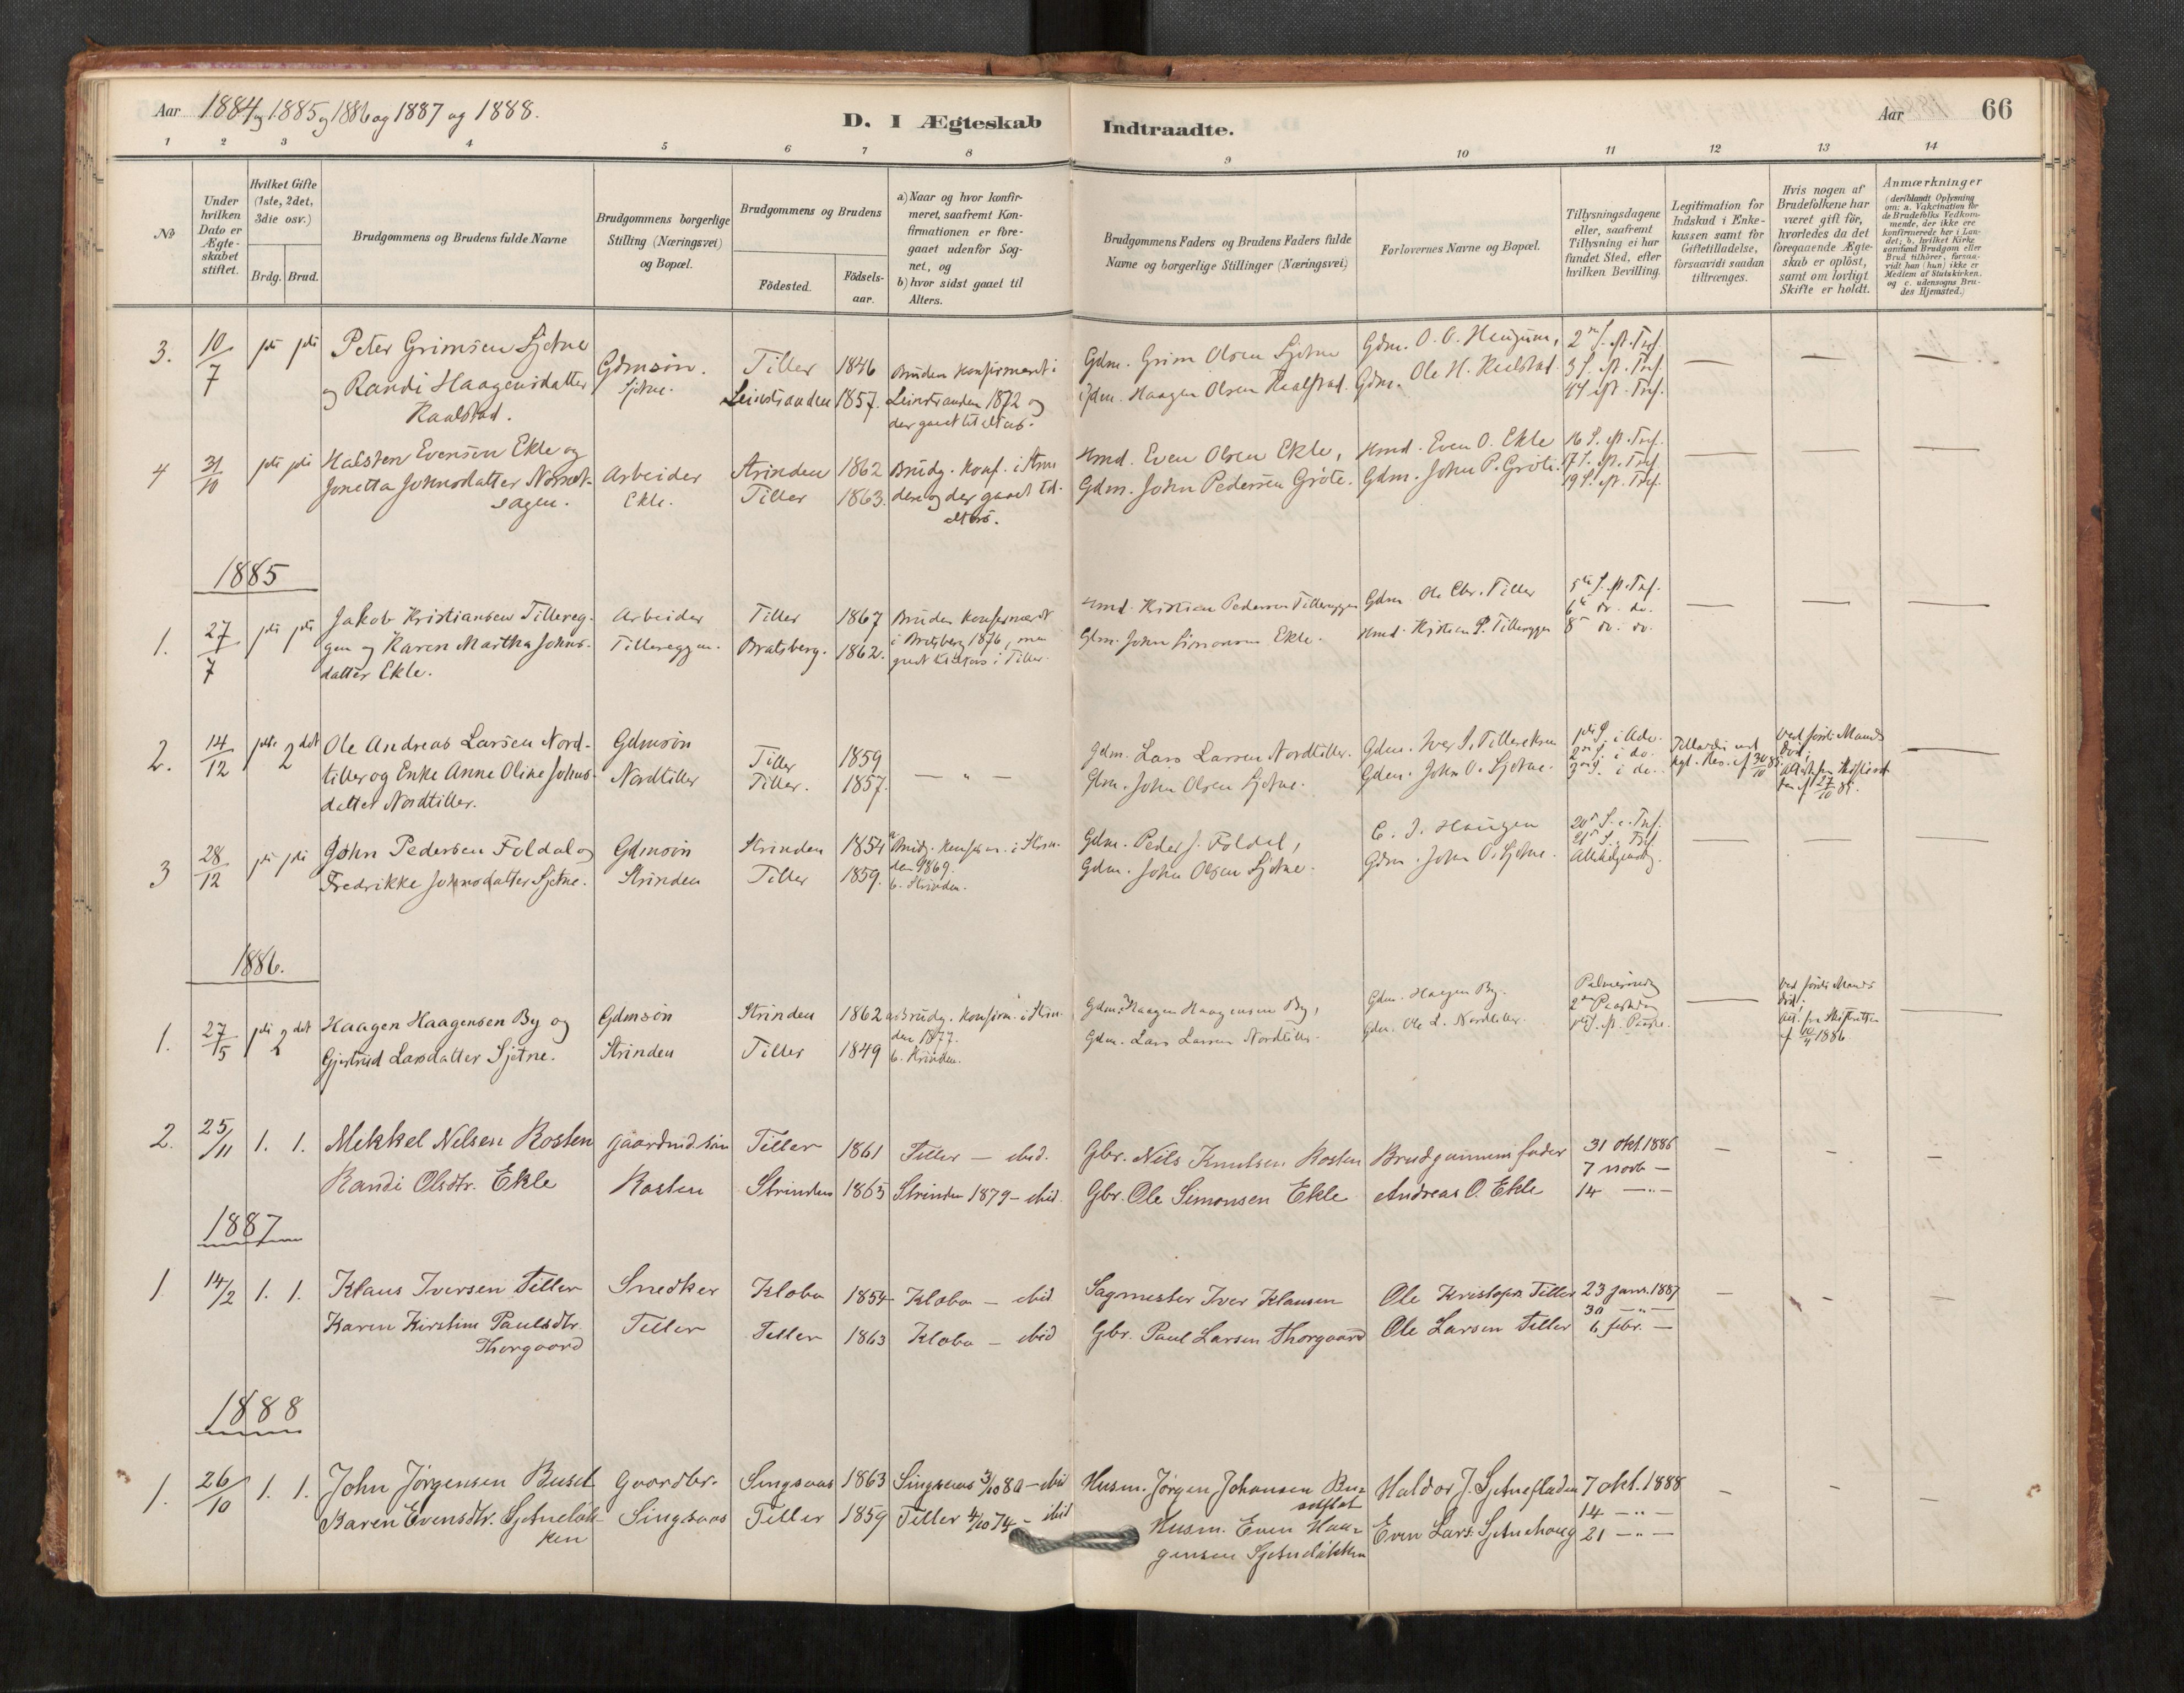 Aar 1884 og 1885 og 1886 og 1887 og 1888.
D. I Ægteskab Indtraadte.
Aar 66
1 2 3 4 5 6 7 8 9 10 11 12 13 14
No
Under hvilken Dato er Ægteskabet stiftet.
Hvilket Gifte (1ste, 2det, 3die osv.)
Brdg. Brud.
Brudgommens og Brudens fulde Navne
Brudgommens borgerlige Stilling (Næringsvei) og Bopæl.
Brudgommens og Brudens
Födested.
Födsels-aar.
a) Naar og hvor konfir-
meret, saafremt Kon-
firmationen er fore-
gaaet udenfor Sog-
net, og
b) hvor sidst gaaet til
Alters.
Brudgommens Faders og Brudens Faders fulde
Navne og borgerlige Stillinger (Næringsvei)
Forlovernes Navne og Bopæl.
Tillysningsdagene
eller, saafremt
Tillysning ei har
fundet Sted, efter
hvilken Bevilling.
Legitimation for
Indskud i Enke-
kassen samt for
Giftetilladelse,
forsaavidt saadan
tiltrænges.
Hvis nogen af
Brudefolkene har
været gift för,
hvorledes da det
foregaaende Ægte-
skab er oplöst,
samt om lovligt
Skifte er holdt.
Anmærkninger
(deriblandt Oplysning
om: a. Vakcination for
de Brudefolks Vedkom-
mende, der ikke ere
konfirmerede her i Lan-
det; b. hvilket Kirke-
samfund Brudgom eller
Brud tilhörer, forsaa-
vidt han (hun) ikke er
Medlem af Statskirken.
og c. udensogns Bru-
des Hjemsted.)
3. 10/7 1ste 1ste Peter Grimsen Sjetne Gdmsøn. Tiller 1846 Bruden konfirmeret i Gdm. Grim Olsen Sjetne Gdm. O. O. Heugum, 2den S. ft. Tref.
og Randi Haagensdatter Sjetne. Leinstranden 1857. Leinstranden 1872 og Gdm. Haagen Olsen Raalstad. Gdm. Ole H. Raalstad. 3 S. ft. Tref.
Raalstad. der gaaet til Alters. 4 S. ft. Tref.
4 31/10 1ste 1ste Halsten Evensen Ekle og Arbeider Strinden 1862 Brudg. konf. i Strin Hmd. Even Olsen Ekle, Hmd. Even O. Ekle 16 S. ft. Tref.
Jonetta Johnsdatter Ekle. Tiller 1863. den og der gaaet til Gdm. John Pedersen Gröte. Gdm. John P. Gröte. 17 S. ft. Tref.
sagen. Alters. 19 S. ft. Tref.
1885
1. 27/7 1ste 1ste Jakob Kristiansen Tillereg- Arbeider Tiller 1867 Bruden konfirmeret Hmd. Kristian Pedersen Tillereggen Gdm. Ole Chr. Tiller 5te S. ft. Tref.
gen og Karen Martha Johns- Tillereggen. Bratsberg. 1862. i Bratsberg 1876, men Gdm. John Simonsen Ekle. Hmd. Kristian P. Tillereggen 6te do. do.
datter Ekle. gaaet til Alters i Tiller. 8de do. do.
2. 14/12 1ste 2det Ole Andreas Larsen Nord- Gdmsön Tiller 1859 — " — Gdm. Lars Larsen Nordtiller. Gdm. Iver S. 1ste S. i Adv. ved förste Mands
tiller og Enke Anne Oline Johns- Nordtiller Tiller. 1857. Gdm. John Olsen Sjetne. Gdm. John O. Sjetne. 2den S. i do. död.
datter Nordtiller. 3die S. i do.
3 28/12 1ste 1ste John Pedersen Foldal og Gdmsön Strinden 1854 a. Brudg. konfirm. i Strin- Gdm. Peder J. Foldal, C. J. Haugen 20de S. e. Tref.
Fredrikke Johnsdatter Sjetne. Strinden Tiller 1859. den 1869. Gdm. John Olsen Sjetne. Gdm. John O. Sjetne. 21de S. e. Tref.
b. Strinden. Allehelgensdag.
1886.
1. 27/5 1ste 2det Haagen Haagensen By og Gdmsön Strinden 1862 a. Brudg. konfirm. i Strin- Gdm. Haagen Haagensen By, Gdm. Haagen By. Palmesöndag ved förste Mands
Gjertrud Larsdatter Sjetne. Strinden Tiller 1849 den 1877. Gdm. Lars Larsen Nordtiller. Gdm. Ole L. Nordtiller. 2den Paaskedag död.
b. Strinden. 1ste S. ft. Paaske. 1886
2. 25/11 1. 1. Mikkel Nilsen Rosten Gaardmd.sön Tiller 1861 Tiller — ibid. Gbr. Nils Knutsen Rosten Brudgommens fader 31 okt. 1886
Randi Olsdtr. Ekle Rosten Strinden 1865 Strinden 1879 — ibid. Gbr. Ole Simonsen Ekle Andreas O. Ekle 7 novb —
14 — " —
1887
1 14/2 1. 1. Klaus Iversen Tiller Snedker Klæbu 1854 Klæbu — ibid. Sagmester Iver Klausen Ole Kristofers. Tiller 23 janr. 1887
Karen Kirstine Paulsdtr. Tiller Tiller 1863 Klæbu — ibid Gbr. Paul Larsen Thorgaard Ole Larsen Tiller 30 — " —
Thorgaard 6 febr. —
1888
1. 26/10 1. 1. John Jörgensen Buset Gaardbr. Singsaas 1863 Singsaas 3/10 80 — ibid Husm. Jörgen Johansen Bu- Haldor J. Sjetnefladen 7 okt. 1888
Karen Evensdtr. Sjetneløk- Singsaas Tiller 1859 Tiller 4/10 74 — ibid Husm. Even Haa- Even Lars. Sjetnehaug 14 — " —
ken gensen Sjetneløkken 21 — " —